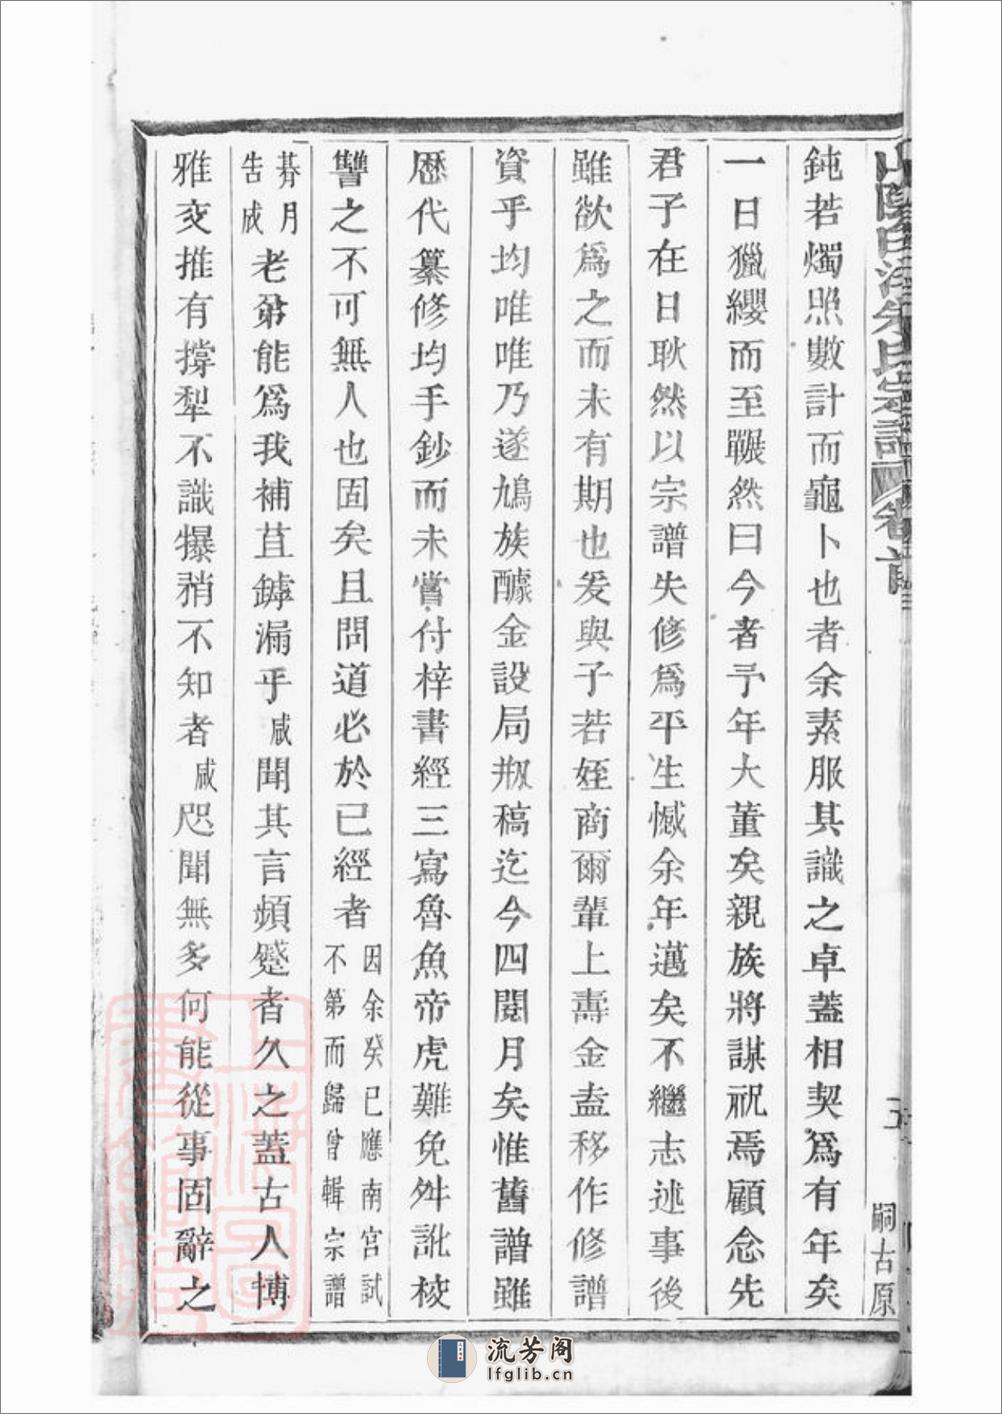 鈍若燭照數計而龜卜也者余素服其識之卓蓋相契爲有年矣
一日獵纓而至囅然曰今者予年大董矣親族將謀祝焉顧念先
君子在日耿然以宗譜失修爲平生憾余年邁矣不繼志述事後
雖欲爲之而未有期也爰與子若姪商爾輩上壽金盍移作修譜
資乎均唯唯乃遂鳩族醵金設局刱稿迄今四閱月矣惟舊譜雖
歷代纂修均手鈔而未嘗付梓書經三寫魯魚帝虎難免舛訛校
讐之不可無人也固矣且問道必於已經者因余癸巳應南宮試不第而歸曾輯宗譜
朞月告成老弟能爲我補苴鏬漏乎咸聞其言頻蹙者久之蓋古人博
雅交推有撐犁不識犦矟不知者咸咫聞無多何能從事固辭之
山陽 朱氏宗譜 卷首
嗣古原
流芳阁
lfglib.cn